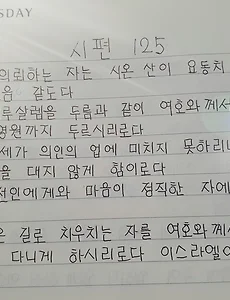 SDAY
시편 125
의뢰하는 자는 시온 산이 요동치
음 같도다
루살렘을 두름과 같이 여호와께서
영원까지 두르시리로다
세가 의인의 업에 미치지 못하리니
을 대지 않게 함이로다
선인에게와 마음이 정직한 자에
은 길로 치우치는 자를 여호와께서
다니게 하시리로다 이스라엘에